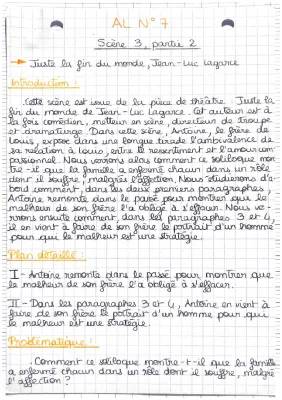 AL N° 7
Scène 3, partie 2
→ Juste la fin du monde, Jean-Luc Lagarce
Introduction :
Cette scène est issue de la pièce de théâtre Juste la
fin du monde de Jean-Luc Lagarce. Cet auteur est à
la fois comédien, metteur en scène, directeur de troupe
et dramaturge. Dans cette scène, Antoine, le frère de
Louis, expose dans une longue tirade l'ambivalence de
sa relation à Louis, entre le ressentiment et l'amour com
passionnel. Nous verrons alors comment ce soliloque mon
tre-t-il que la famille a enfermé chacun dans un rôle
dont il souffre, malgré l'affection. Nous étudierons d'a
bord comment, dans les deux premiers paragraphes,
Antoine remonte dans le passé pour montrer que le
malheur de son frère l'a obligé à s'effacer. Nous ve-
rrons ensuite comment, dans les paragraphes 3 et 4,
il en vient à faire de son frère le portrait d'un homme
pour qui le malheur est une stratégie.
Plan détaillé :
I - Antoine remonte dans le passé pour montrer que
le malheur de son frère l'a obligé à s'effacer.
II - Dans les paragraphes 3 et 4, Antoine en vient à
faire de son frère le portrait d'un homme pour qui
le malheur est une stratégie.
Problématique :
Comment ce soliloque montre-t-il que la famille
a enfermé chacun dans un rôle dont il souffre, malgré
l'affection ?